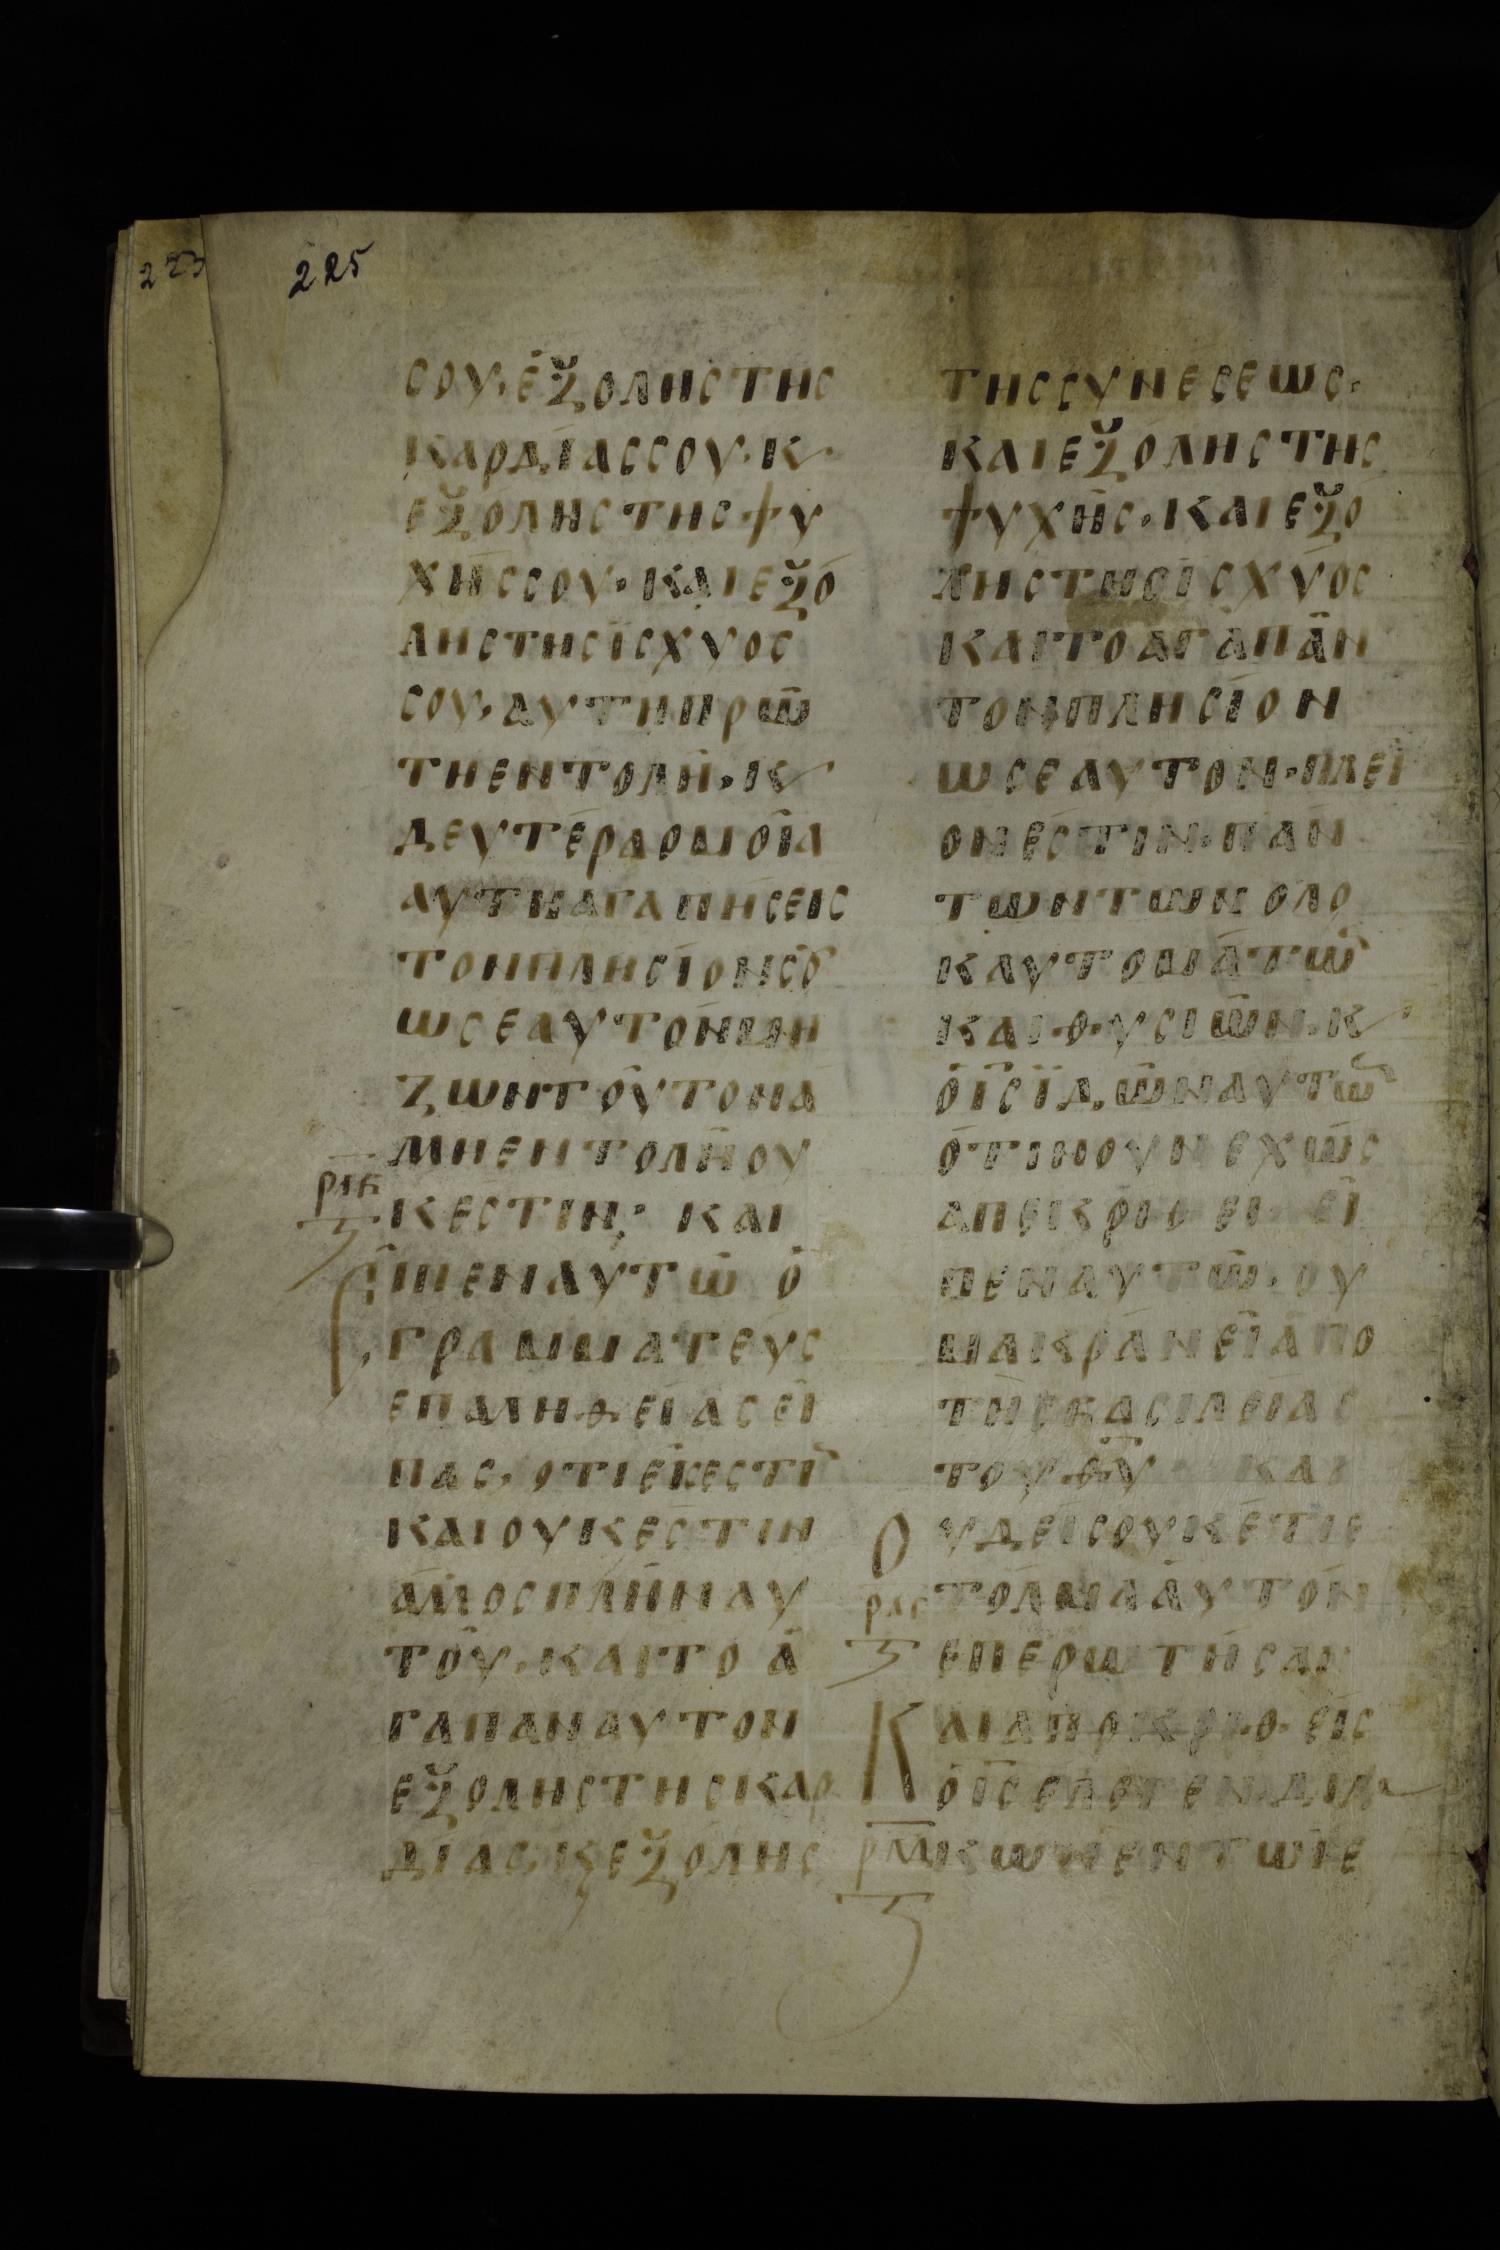 223
225
ϹΟΥ· ἐξ ΟΛΗϹ ΤΗϹ
ΚΑΡΔΊΑϹ ϹΟΥ· Κ
ΕΞ ΟΛΗϹ ΤΗϹ ΨΥ
ΧΗ͂Ϲ ϹΟΥ· ΚΑΙ ΕΞ Ὁ
ΛΗϹ ΤΗϹ ΪϹΧΥΟϹ
ϹΟΥ· ΑΥΤΗ ΠΡΩ
ΤΗ ΕΝΤΟΛΗ· Κ
ΔΕΥΤΈΡΑ ΟΜΟΙΑ
ΑΥΤΗ ΑΓΑΠΗϹΕΙϹ
ΤΟΝ ΠΛΗϹΙΟΝ ϹΟΥ
ΩϹ ΕΑΥΤΟΝ ΜΗ
ΖΩΝ ΤΟΥΤΟΝ Ἀ
ΜΗ ΕΝΤΟΛΗ ΟΥ
ΡΛΒ
Ϛ
Κ ΕϹΤΙΝ· ΚΑΙ
ΕΙΠΕΝ ΑΥΤΩ Ο
ΓΡΑΜΜΑΤΕΥϹ
ΕΠ ΑΛΗΘΕΙΑϹ ΕΙ
ΠΑϹ· ΟΤΙ ΕΙϹ ΕϹΤΙ
ΚΑΙ ΟΥΚ ΕϹΤΙΝ
ΑΛΛΟϹ ΠΛΗΝ ΑΥ
ΤΟΥ· ΚΑΙ ΤΟ Ἀ
ΓΑΠΑΝ ΑΥΤΟΝ
ΕΞ ΟΛΗϹ ΤΗϹ ΚΑΡ
ΔΙΑϹ· Κ ΕΞ ΟΛΗϹ
ΤΗϹ ϹΥΝΕϹΕΩϹ·
ΚΑΙ ΕΞ ΟΛΗϹ ΤΗϹ
ΨΥΧΗϹ· ΚΑΙ ΕΞ Ὁ
ΛΗϹ ΤΗϹ ΙϹΧΥΟϹ
ΚΑΙ ΤΟ ΑΓΑΠΑΝ
ΤΟΝ ΠΛΗϹΙΟΝ
ΩϹ ΕΑΥΤΟΝ· ΠΛΕΙ
ΟΝ ΕϹΤΙΝ· ΠΑΝ
ΤΩΝ ΤΩΝ ΟΛΟ
ΚΑΥΤΟΜΑΤΩ
ΚΑΙ ΘΥϹΙΩΝ· Κ
Ο ΙϹ ΪΔΩΝ ΑΥΤΟ
ΟΤΙ ΝΟΥΝΕΧΩϹ
ΑΠΕΙΚΡΙΘΕΙ ΕΙ
ΠΕΝ ΑΥΤΩ· ΟΥ
ΜΑΚΡΑΝ ΕΙ ΑΠΟ
ΤΗϹ ΒΑϹΙΛΕΙΑϹ
ΤΟΥ ΘΥ ΚΑΙ
ΟΥΔΕΙϹ ΟΥΚΕΤΙ Ε
ΤΟΛΜΑ ΑΥΤΟΝ
ΕΠΕΡΩΤΗϹΑΙ
ΚΑΙ ΑΠΟΚΡΙΘΕΙϹ
Ο ΙϹ ΕΛΕΓΕΝ· ΔΙΔΑ
ΡΜ
ϹΚΩΝ ΕΝ ΤΩ ΙΕ